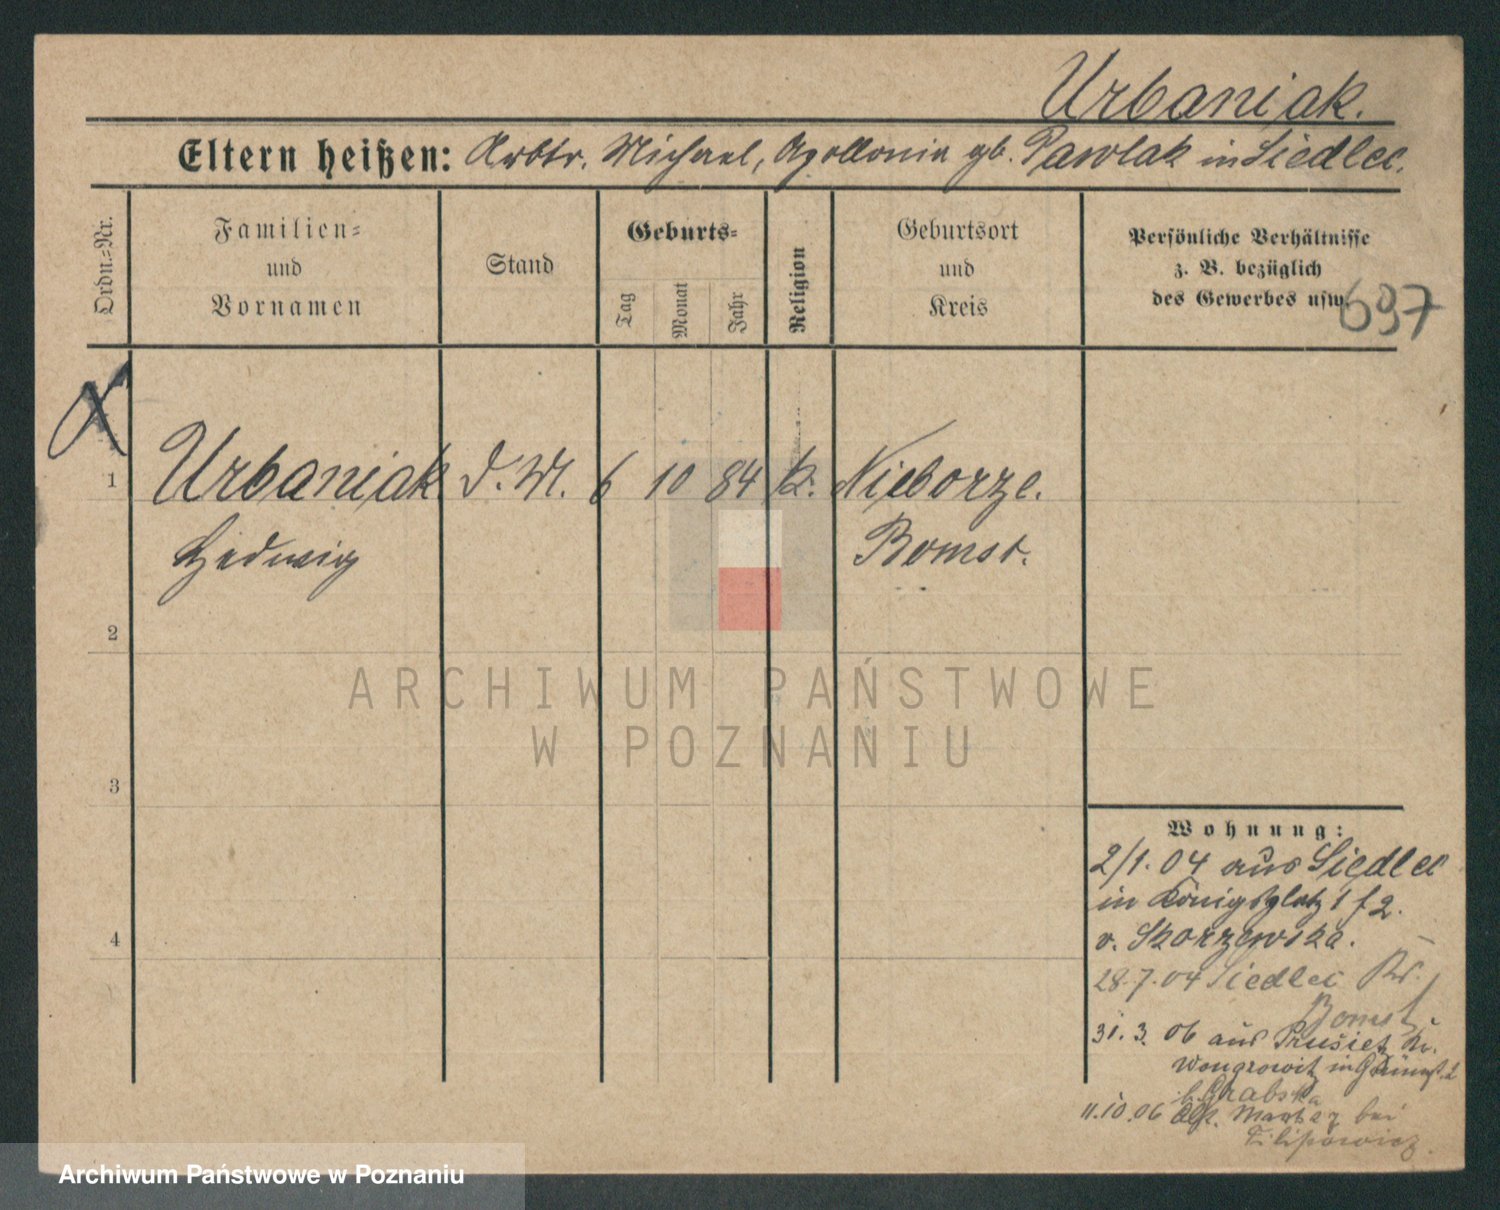 Urbaniak.
Eltern heißen: Arbtr. Michael, Apollonia gb. Pawlak in Siedlec.
Ordn.-Nr.
Familien-
und
Vornamen
Stand
Geburts-
Tag
Monat
Jahr
Religion
Geburtsort
und
Kreis
Persönliche Verhältnisse
z. B. bezüglich
des Gewerbes usw.
697
1 Urbaniak d. M. 6 10 84 k. Nieborze.
Hedwig Bomst.
2
3
4
ARCHIWUM PAŃSTWOWE
W POZNANIU
Wohnung:
2/1.04 aus Siedlec
in Königsplatz 1 f 2.
v. Skorzewska.
28.7.04 Siedlec Kr.
Bomst
31.3.06 aus Prusietz Kr.
Wongrowitz in
b. Grabska
11.10.06 bei
Filipowicz.
Archiwum Państwowe w Poznaniu